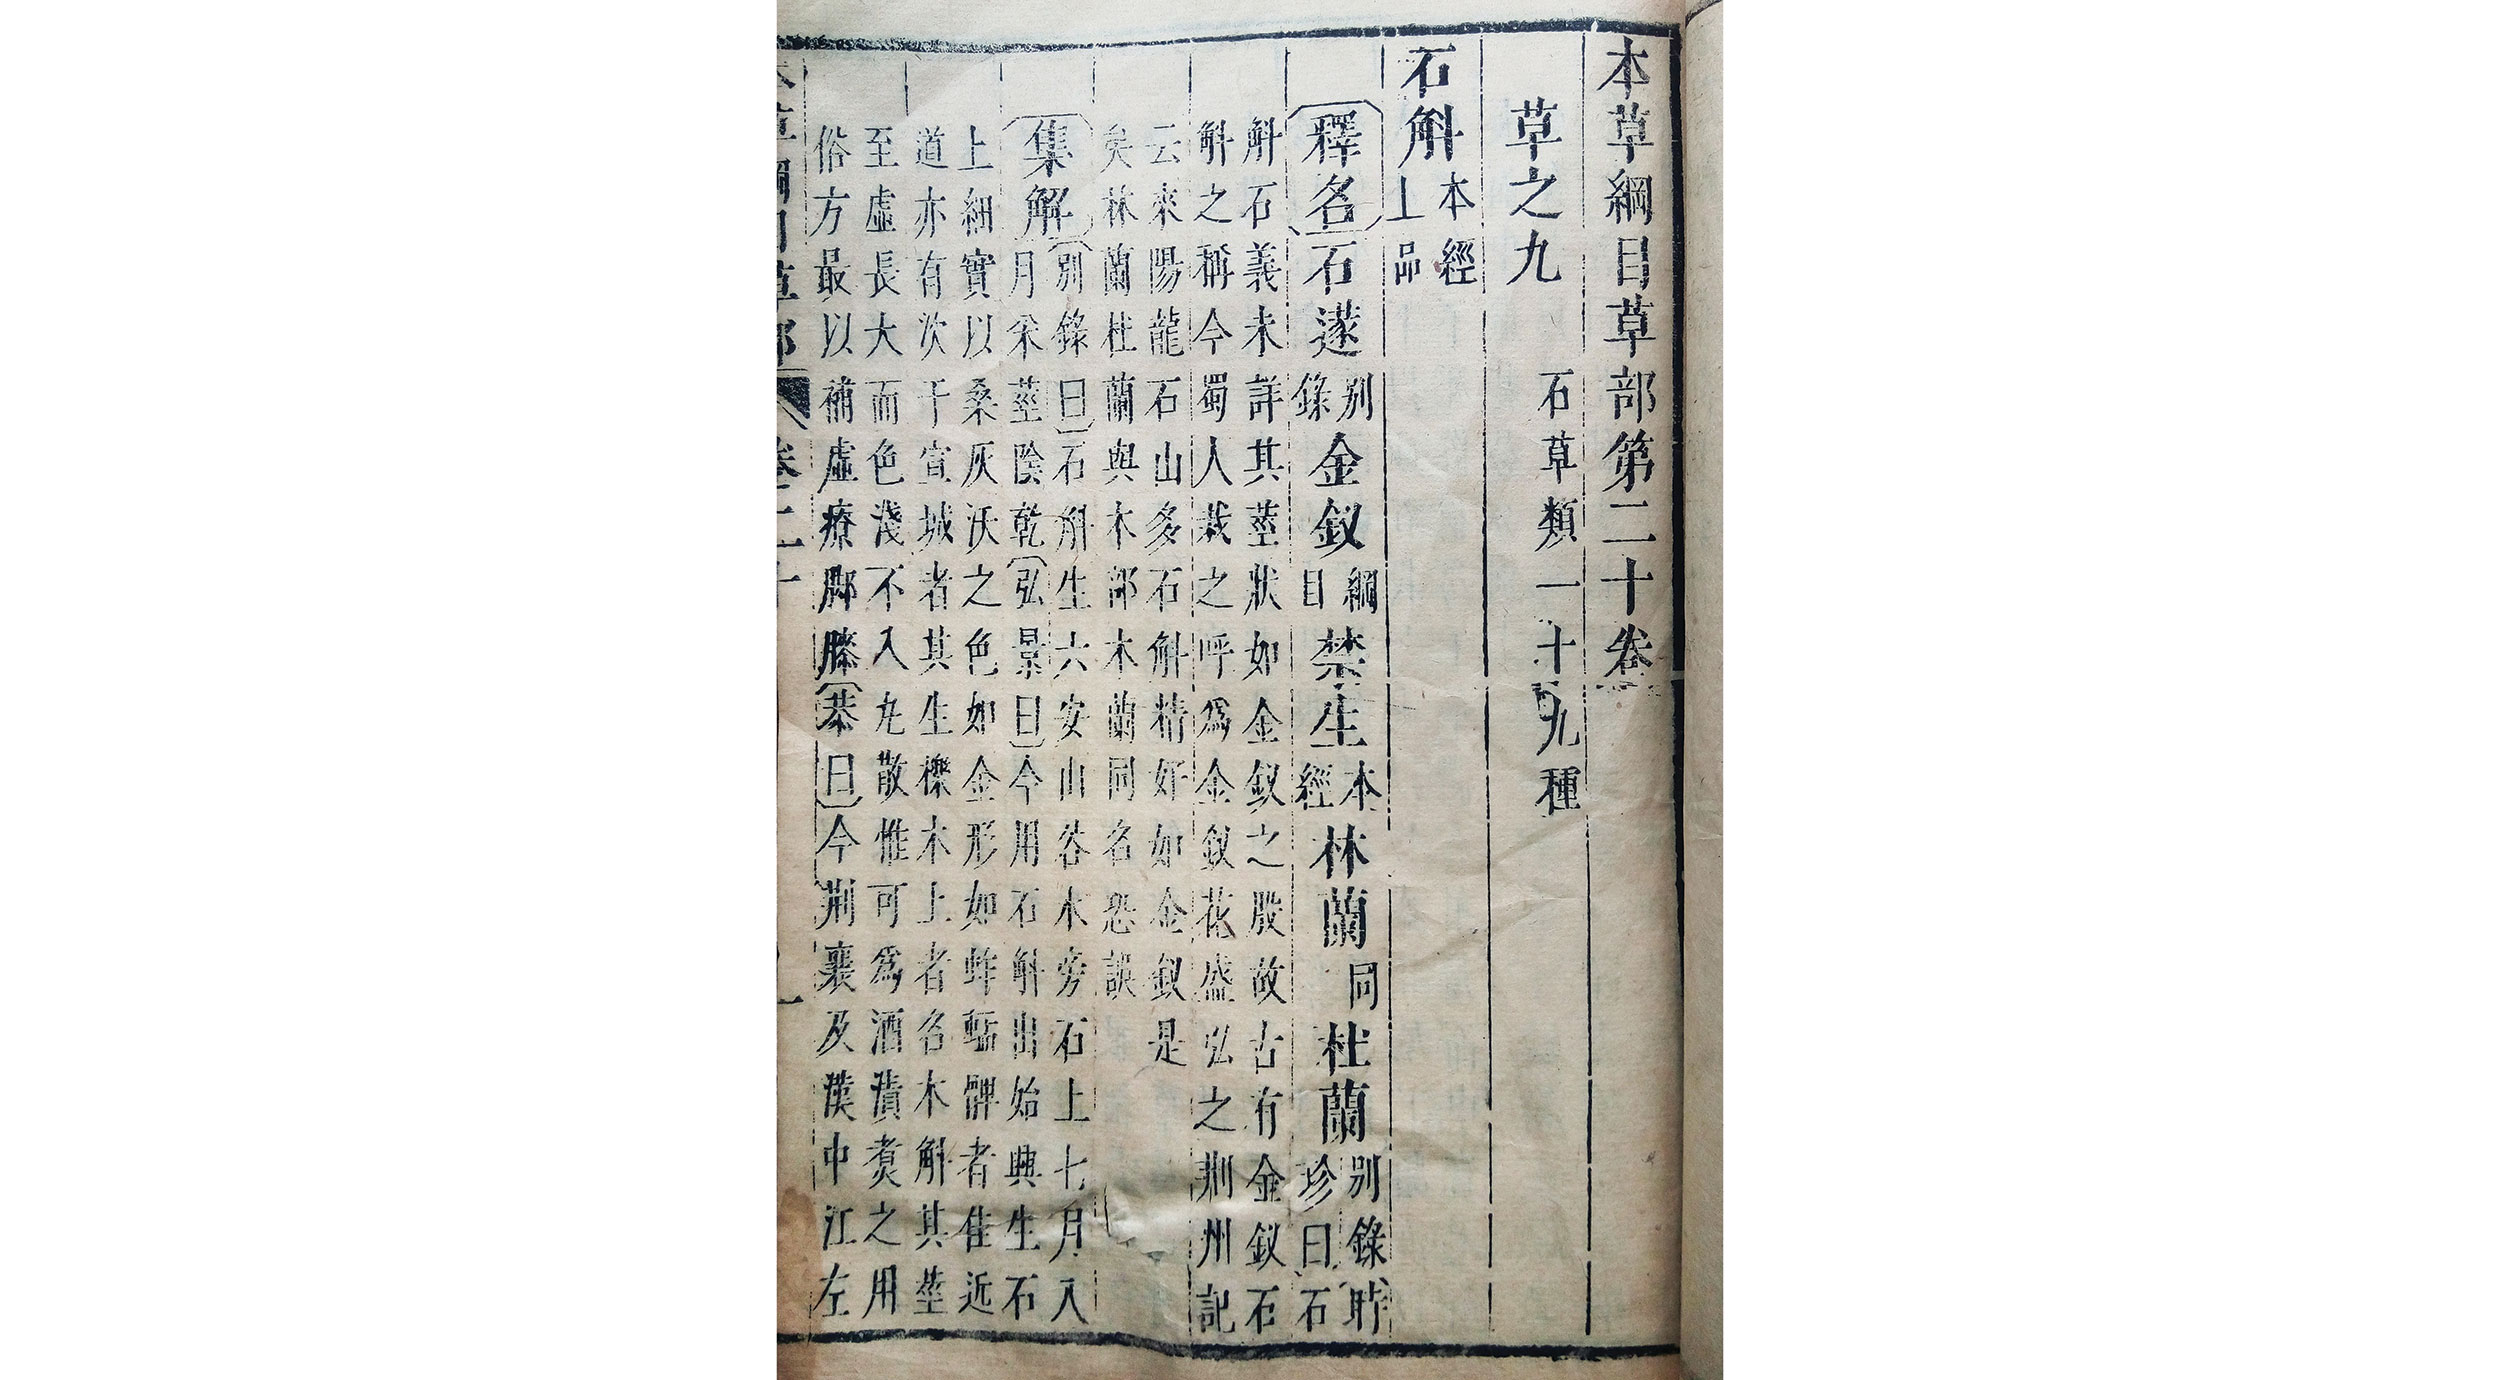 本草綱目草部第二十卷
草之九 石草類一十九種
石斛 本經上品
釋名 石蓫 別錄 金釵 綱目 禁生 本經 林蘭 同 杜蘭 別錄 時珍曰石
斛石義未詳其莖狀如金釵之股故古有金釵石
斛之稱今蜀人栽之呼爲金釵花盛弘之荆州記
云來陽龍石山多石斛精好如金釵是
矣林蘭杜蘭與木部木蘭同名恐誤
集解 別錄曰石斛生六安山谷水旁石上七月八
月采莖陰乾弘景曰今用石斛出始興生石
上細實以桑灰沃之色如金形如蚱蜢髀者佳近
道亦有次于宣城者其生櫟木上者名木斛其莖
至虛長大而色淺不入丸散惟可爲酒漬煑之用
俗方最以補虛療脚膝恭曰今荆襄及漢中江左